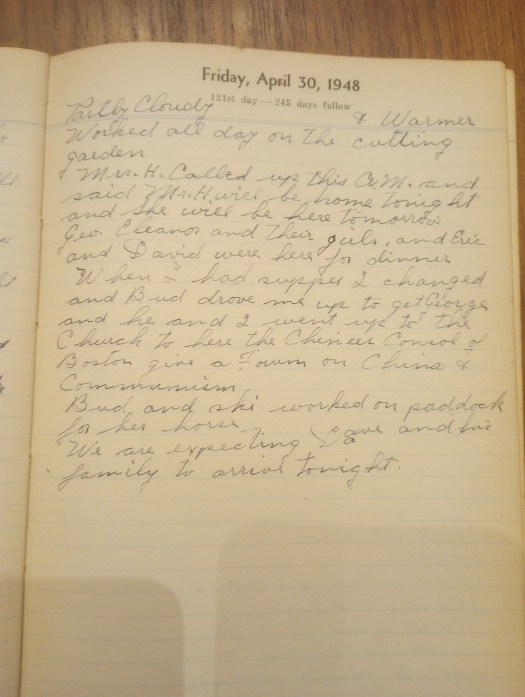 Friday, April 30, 1948
121st day — 245 days follow
Partly Cloudy & Warmer
Worked all day on the cutting
garden
Mrs. H. Called up this A.M. and
said Mr. H. will be home tonight
and she will be here tomorrow
Geo. Eleanor and their girls, and Eric
and David were here for dinner
When I had supper I changed
and Bud drove me up to get George
and he and I went up to the
Church to here the Chineer Consol of
Boston give a Foum on China &
Communism
Bud and ski worked on paddock
for her horse
We are expecting Dave and his
family to arrive tonight.